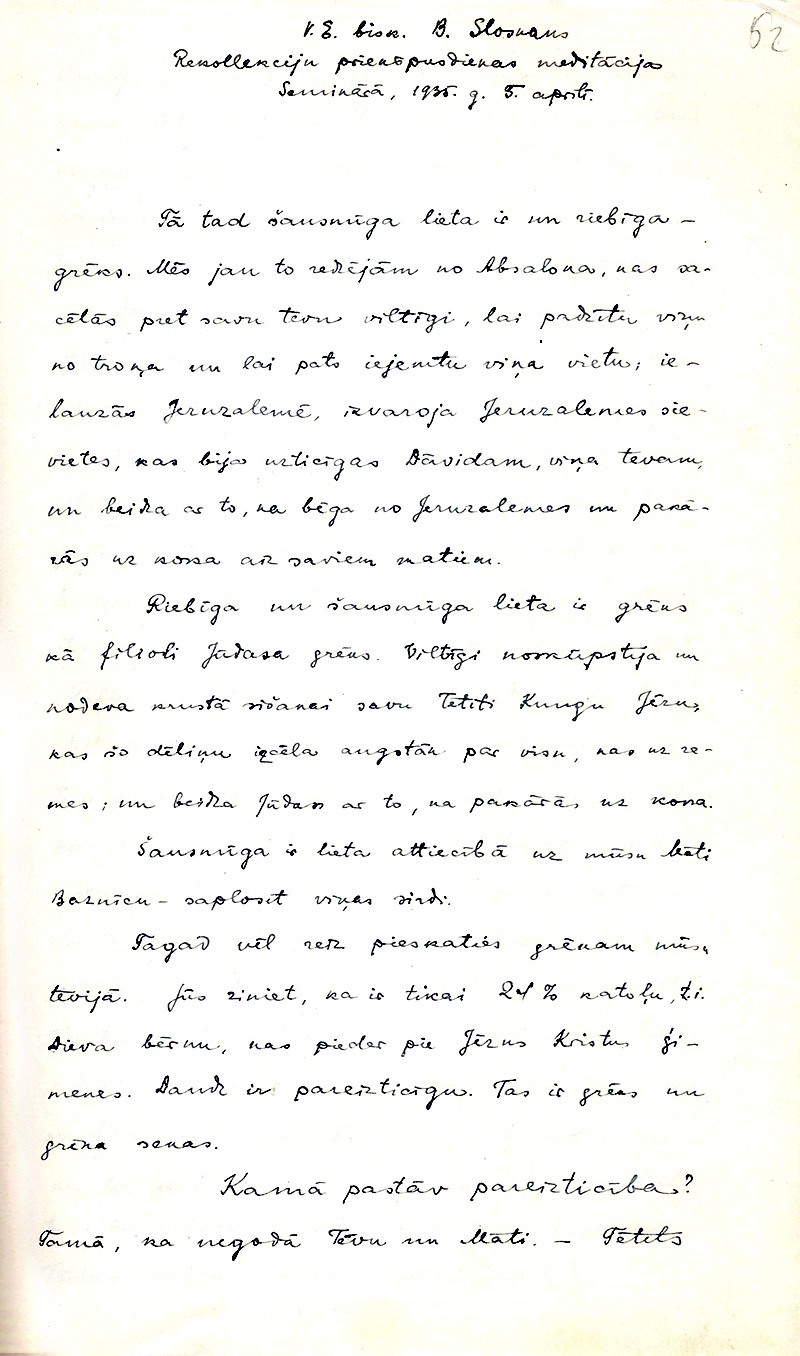 62
V. E. bisk. B. Sloskans
Rekollekciju priekšpusdienas meditācija
Seminārā, 1935. g. 5. aprīlī.
Tā tad šausmīga lieta ir un riebīga –
grēks. Mēs jau to redzējām no Absalona, kas sa-
cēlās pret savu tēvu viltīgi, lai padzītu viņu
no troņa un lai pats ieņemtu viņa vietu; ie-
lauzās Jeruzalemē, izvaroja Jeruzalemes sie-
vietes, kas bija uzticīgas Dāvidam, viņa tēvam,
un beidza ar to, ka bēga no Jeruzalemes un pakā-
rās uz koka aiz saviem matiem.
Riebīga un šausmīga lieta ir grēks
kā filioli Jūdasa grēks. Viltīgi noskūpstīja un
nodeva krustā sišanai savu Tētīti Kungu Jēzu,
kas šo dēliņu izcēla augstāk par visu, kas uz ze-
mes; un beidza Jūdass ar to, ka pakārās uz koka.
Šausmīga ir lieta attiecībā uz mūsu Māti
Baznīcu – saplosīt viņas sirdi.
Tagad vēl reiz pieskaties grēkam mūsu
tēvijā. Jūs ziniet, ka ir tikai 24% katoļu, t.i.
Dieva bērnu, kas pieder pie Jēzus Kristus ģi-
menes. Daudz ir pareizticīgu. Tas ir grēks un
grēka sekas.
Kamā pastāv pareizticība?
Tamā, ka negodā Tēvu un Māti. – Tētīts